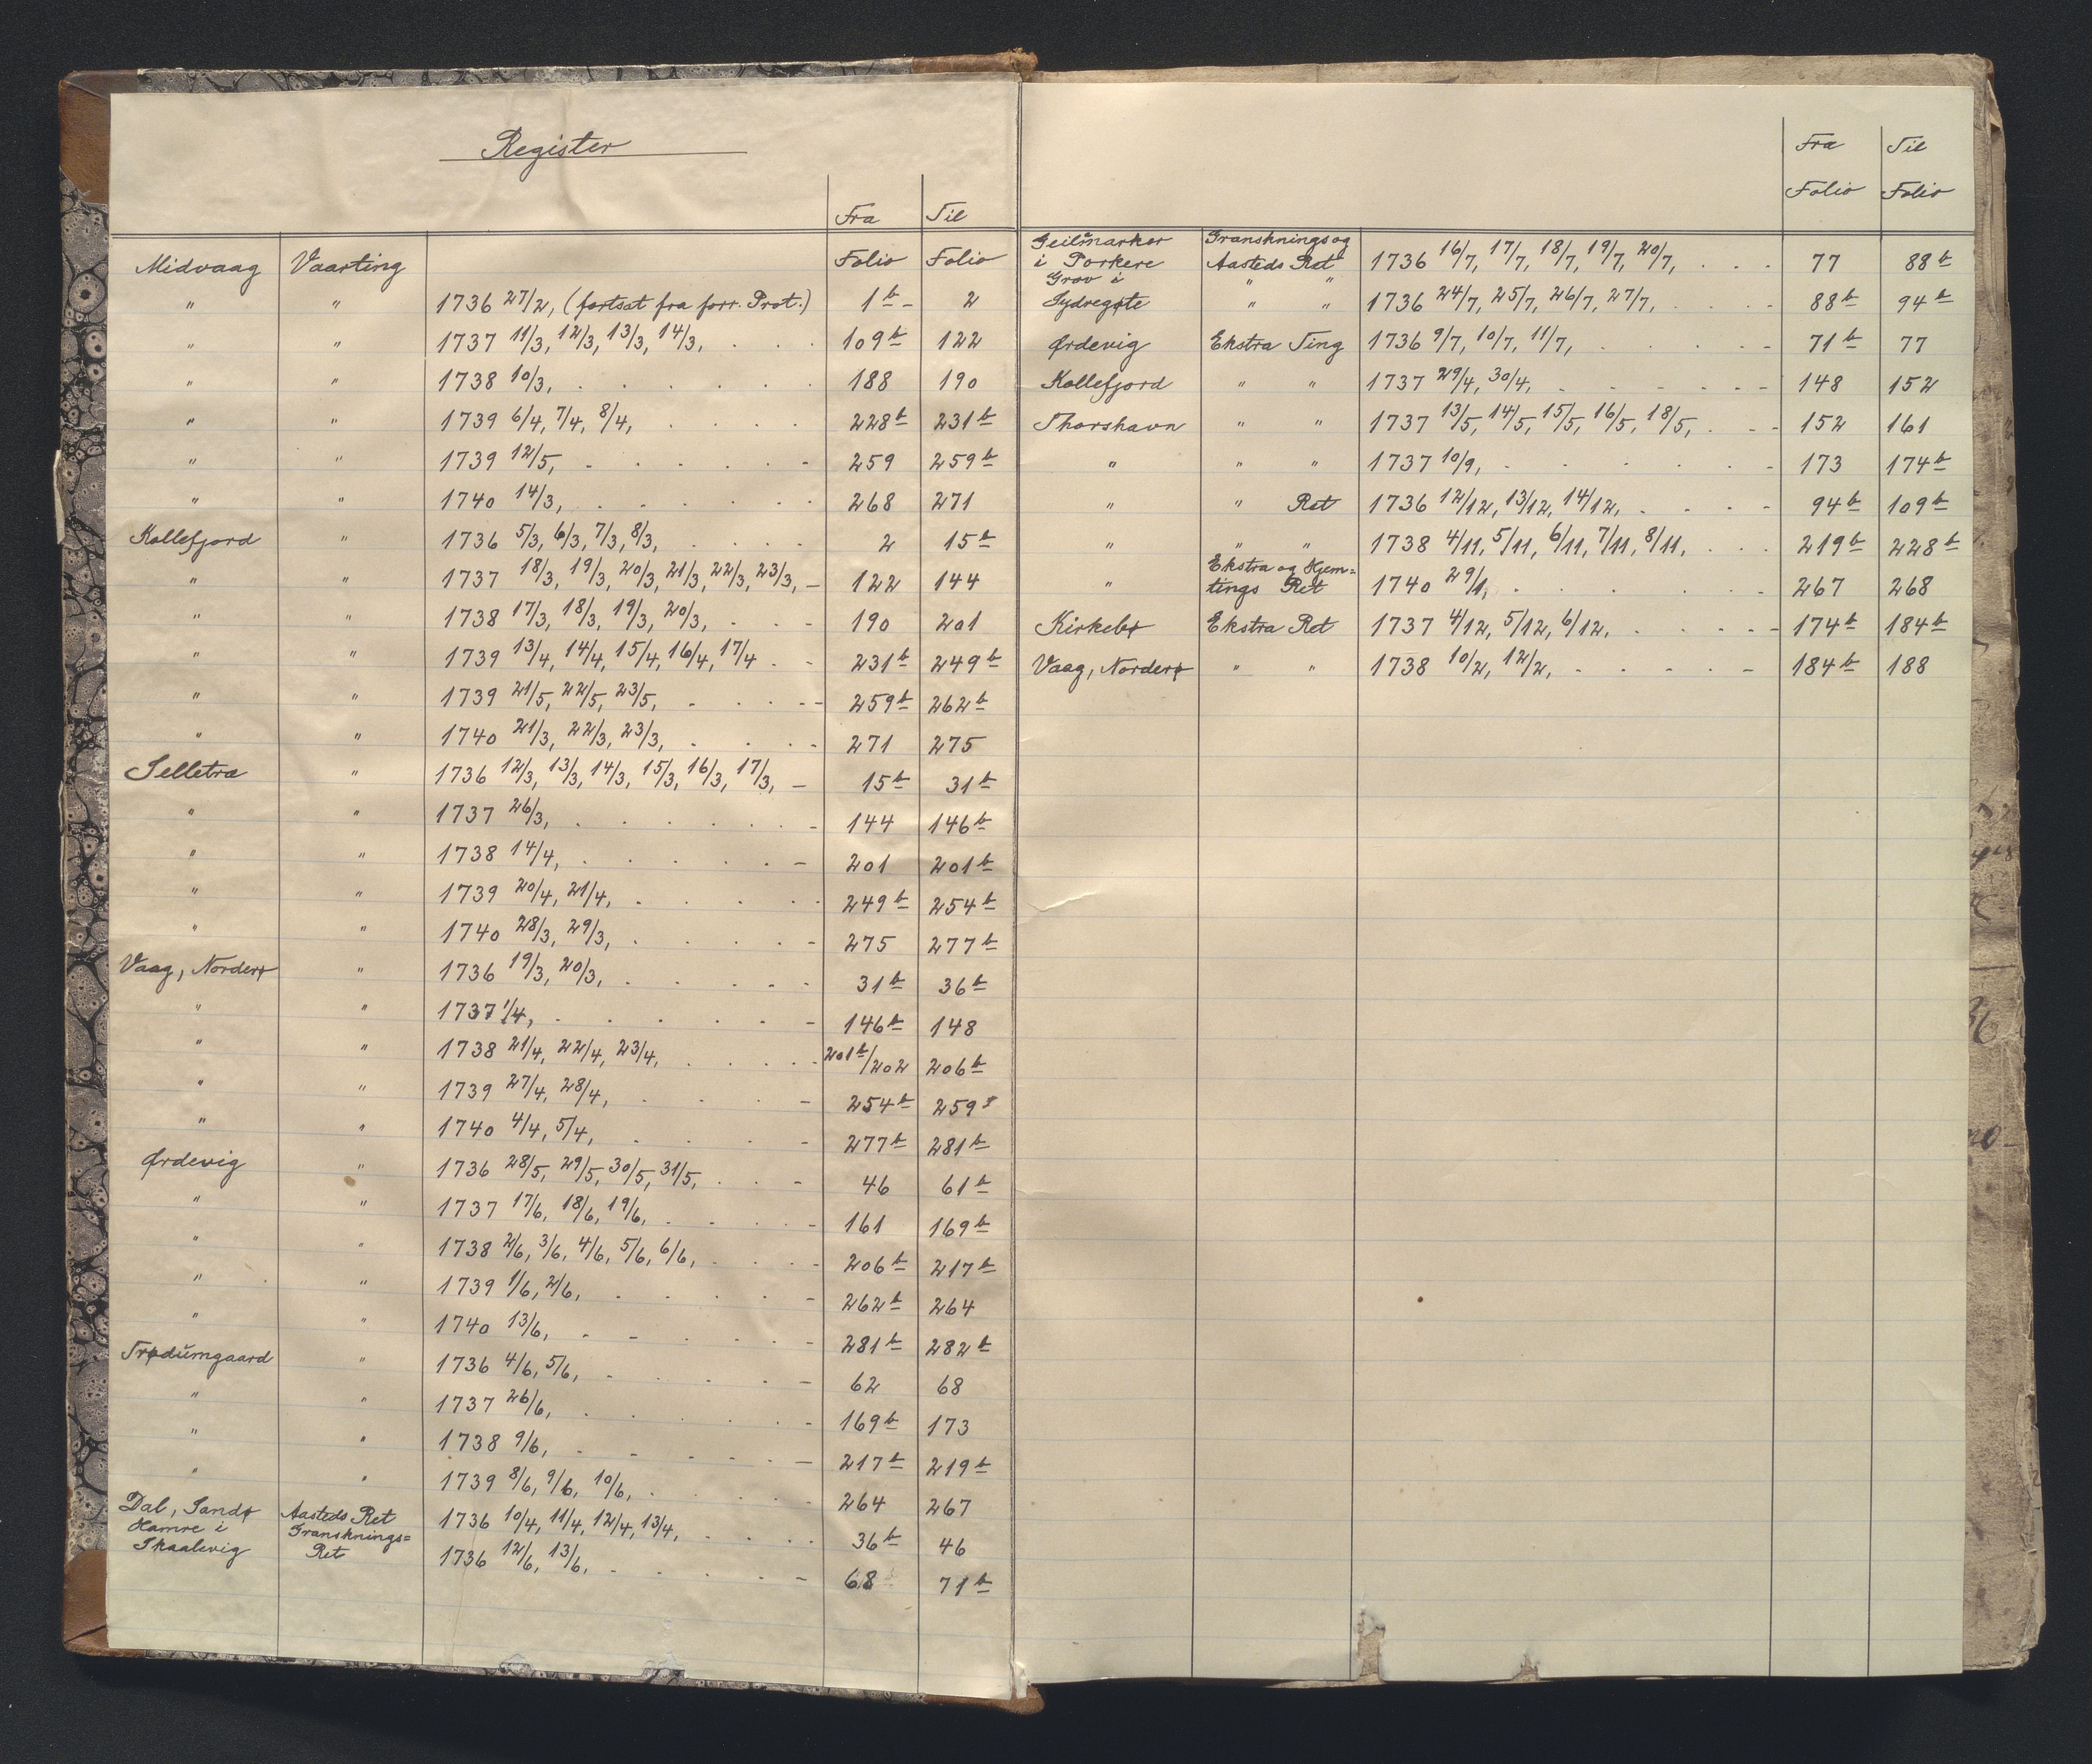 Register
Fra Til
Midvaag Vaarting Folio Folio
" " 1736 27/2, (fortsat fra forr. Prot.) 1b - 2
" " 1737 11/3, 12/3, 13/3, 14/3, 109b 122
" " 1738 10/3, 188 190
" " 1739 6/4, 7/4, 8/4, 228b 231b
" " 1739 12/5, 259 259b
" " 1740 14/3, 268 271
Kollefjord " 1736 5/3, 6/3, 7/3, 8/3, 2 15b
" " 1737 18/3, 19/3, 20/3, 21/3, 22/3, 23/3, 122 144
" " 1738 17/3, 18/3, 19/3, 20/3, 190 201
" " 1739 13/4, 14/4, 15/4, 16/4, 17/4 231b 249b
" " 1739 21/5, 22/5, 23/5, 259b 262b
" " 1740 21/3, 22/3, 23/3, 271 275
Selletra " 1736 12/3, 13/3, 14/3, 15/3, 16/3, 17/3, 15b 31b
" " 1737 26/3, 144 146b
" " 1738 14/4, 201 201b
" " 1739 20/4, 21/4, 249b 254b
" " 1740 28/3, 29/3, 275 277b
Vaag, Norderø " 1736 19/3, 20/3, 31b 36b
" " 1737 1/4, 146b 148
" " 1738 21/4, 22/4, 23/4, 201b/202 206b
" " 1739 27/4, 28/4, 254b 259
" " 1740 4/4, 5/4, 277b 281b
Ørdevig " 1736 28/5, 29/5, 30/5, 31/5, 46 61b
" " 1737 17/6, 18/6, 19/6, 161 169b
" " 1738 2/6, 3/6, 4/6, 5/6, 6/6, 206b 217b
" " 1739 1/6, 2/6, 262b 264
" " 1740 13/6, 281b 282b
Trødumgaard " 1736 4/6, 5/6, 62 68
" " 1737 26/6, 169b 173
" " 1738 9/6, 217b 219b
" " 1739 8/6, 9/6, 10/6, 264 267
Dal, Sandø Aasteds Ret 1736 10/4, 11/4, 12/4, 13/4, 36b 46
Hamre i Skaalevig Gransknings= Ret 1736 12/6, 13/6, 68 71b
Fra Til
Folio Folio
Teilmarker i Porkere Gransknings og Aasteds Ret 1736 16/7, 17/7, 18/7, 19/7, 20/7, 77 88b
Grov i Sydregøte " " 1736 24/7, 25/7, 26/7, 27/7, 88b 94b
Ørdevig Ekstra Ting 1736 9/7, 10/7, 11/7, 71b 77
Kollefjord " " 1737 29/4, 30/4, 148 152
Thorshavn " " 1737 13/5, 14/5, 15/5, 16/5, 18/5, 152 161
" " " 1737 10/9, 173 174b
" " Ret 1736 12/12, 13/12, 14/12, 94b 109b
" " " 1738 4/11, 5/11, 6/11, 7/11, 8/11, 219b 228b
" Ekstra og Hjem= tings Ret 1740 29/1, 267 268
Kirkebø Ekstra Ret 1737 4/12, 5/12, 6/12, 174b 184b
Vaag, Norderø " " 1738 10/2, 12/2, 184b 188